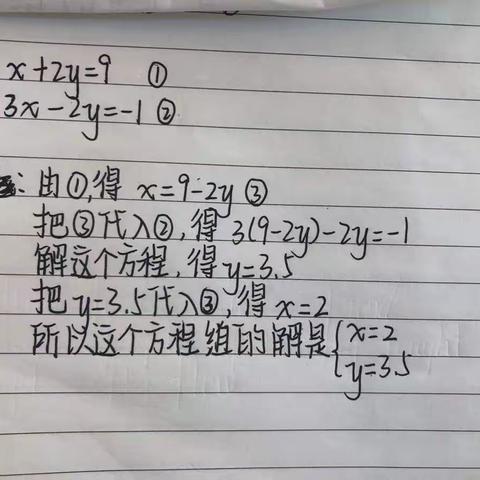 x+2y=9 ①
3x-2y=-1 ②
: 由①,得 x=9-2y ③
把③代入②,得 3(9-2y)-2y=-1
解这个方程,得y=3.5
把y=3.5代入③,得x=2
所以这个方程组的解是{x=2
y=3.5